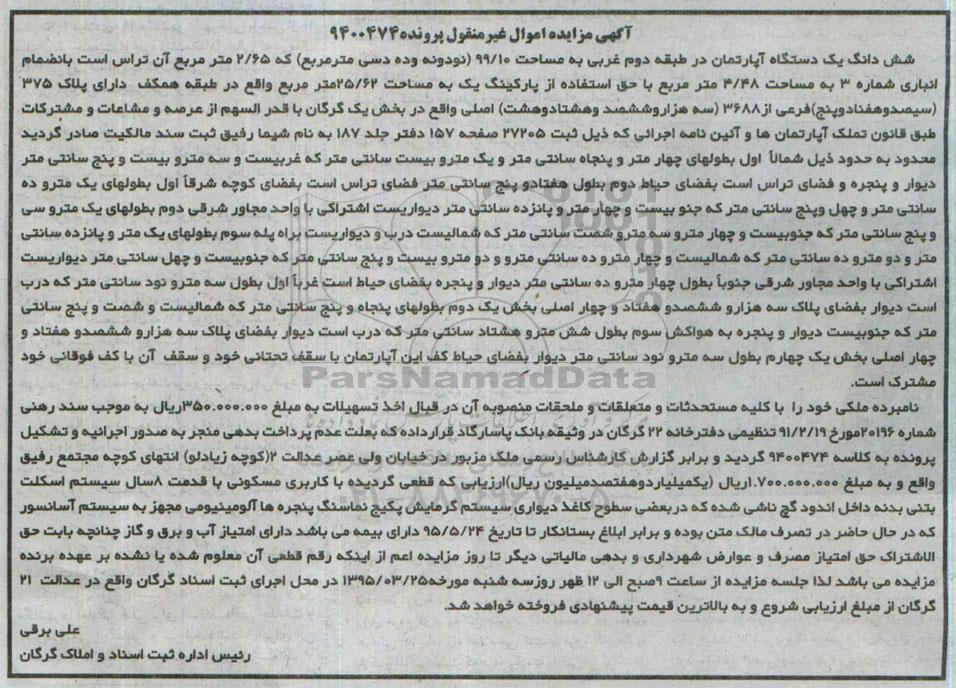 آگهی مزایده اموال غیرمنقول پرونده ۹۴۰۰۴۷۴
شش دانگ یک دستگاه آپارتمان در طبقه دوم غربی به مساحت ۹۹/۱۰ (نودونه وده دسی مترمربع) که ۲/۶۵ متر مربع آن تراس است بانضمام
انباری شماره ۳ به مساحت ۴/۴۸ متر مربع با حق استفاده از پارکینگ یک به مساحت ۲۵/۶۲متر مربع واقع در طبقه همکف دارای پلاک ۳۷۵
(سیصدوهفتادوپنج)فرعی از۳۶۸۸ (سه هزاروششصد وهشتادوهشت) اصلی واقع در بخش یک گرگان با قدر السهم از عرصه و مشاعات و مشترکات
طبق قانون تملک آپارتمان ها و آئین نامه اجرائی که ذیل ثبت ۲۷۲۰۵ صفحه ۱۵۷ دفتر جلد ۱۸۷ به نام شیما رفیق ثبت سند مالکیت صادر گردید
محدود به حدود ذیل شمالاً اول بطولهای چهار متر و پنجاه سانتی متر و یک مترو بیست سانتی متر که غربیست و سه مترو بیست و پنج سانتی متر
دیوار و پنجره و فضای تراس است بفضای حیاط دوم بطول هفتادو پنج سانتی متر فضای تراس است بفضای کوچه شرقاً اول بطولهای یک مترو ده
سانتی متر و چهل وپنج سانتی متر که جنو بیست و چهار متر و پانزده سانتی متر دیواریست اشتراکی با واحد مجاور شرقی دوم بطولهای یک مترو سی
و پنج سانتی متر که جنوبیست و چهار مترو سه مترو شصت سانتی متر که شمالیست درب و دیواریست براه پله سوم بطولهای یک متر و پانزده سانتی
متر و دو مترو ده سانتی متر که شمالیست و چهار مترو ده سانتی مترو و دو مترو بیست و پنج سانتی متر که جنوبیست و چهل سانتی متر دیواریست
اشتراکی با واحد مجاور شرقی جنوباً بطول چهار مترو ده سانتی متر دیوار و پنجره بفضای حیاط است غرباً اول بطول سه مترو نود سانتی متر که درب
است دیوار بفضای پلاک سه هزارو ششصدو هفتاد و چهار اصلی بخش یک دوم بطولهای پنجاه و پنج سانتی متر که شمالیست و شصت و پنج سانتی
متر که جنوبیست دیوار و پنجره به هواکش سوم بطول شش مترو هشتاد سانتی متر که درب است دیوار بفضای پلاک سه هزارو ششصدو هفتاد و
چهار اصلی بخش یک چهارم بطول سه مترو نود سانتی متر دیوار بفضای حیاط کف این آپارتمان با سقف تحتانی خود و سقف آن با کف فوقانی خود
مشترک است.
ParsNamadData
نامبرده ملکی خود را با کلیه مستحدثات و متعلقات و ملحقات منصوبه آن در قبال اخذ تسهیلات به مبلغ ۳۵۰.۰۰۰.۰۰۰ریال به موجب سند رهنی
شماره ۲۰۱۹۶مورخ ۹۱/۲/۱۹ تنظیمی دفترخانه ۲۲ گرگان در وثیقه بانک پاسارگاد قرارداده که بعلت عدم پرداخت بدهی منجر به صدور اجرائیه و تشکیل
پرونده به کلاسه ۹۴۰۰۴۷۴ گردید و برابر گزارش کارشناس رسمی ملک مزبور در خیابان ولی عصر عدالت ۲(کوچه زیادلو) انتهای کوچه مجتمع رفیق
واقع و به مبلغ ۱.۷۰۰.۰۰۰.۰۰۰ریال (یکمیلیاردوهفتصدمیلیون ریال)ارزیابی که قطعی گردیده با کاربری مسکونی با قدمت ۸سال سیستم اسکلت
بتنی بدنه داخل اندود گچ ناشی شده که دربعضی سطوح کاغذ دیواری سیستم گرمایش پکیج نماسنگ پنجره ها آلومینیومی مجهز به سیستم آسانسور
که در حال حاضر در تصرف مالک متن بوده و برابر ابلاغ بستانکار تا تاریخ ۹۵/۵/۲۴ دارای بیمه می باشد دارای امتیاز آب و برق و گاز چنانچه بابت حق
الاشتراک حق امتیاز مصرف و عوارض شهرداری و بدهی مالیاتی دیگر تا روز مزایده اعم از اینکه رقم قطعی آن معلوم شده یا نشده بر عهده برنده
مزایده می باشد لذا جلسه مزایده از ساعت ۹صبح الی ۱۲ ظهر روزسه شنبه مورخه۱۳۹۵/۰۳/۲۵ در محل اجرای ثبت اسناد گرگان واقع در عدالت ۲۱
گرگان از مبلغ ارزیابی شروع و به بالاترین قیمت پیشنهادی فروخته خواهد شد.
علی برقی
رئیس اداره ثبت اسناد و املاک گرگان